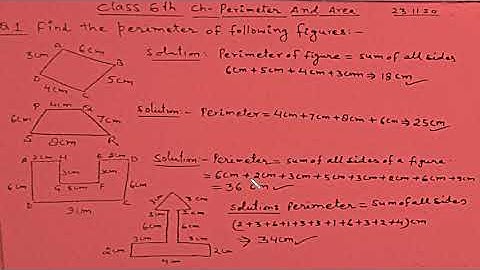 Class 6th Ch- Perimeter And Area 23.11.20
Q.1 Find the perimeter of following figures:-
A 6cm B
3cm
D 4cm C 5cm
Solution:- Perimeter of figure = sum of all sides
6cm + 5cm + 4cm + 3cm ⇒ 18cm
P 4cm Q
6cm 7cm
S 8cm R
Solution:- Perimeter = 4cm + 7cm + 8cm + 6cm ⇒ 25cm
A 2cm H E 2cm D
6cm 3cm 3cm 6cm
G 5cm F
B 9cm C
Solution:- Perimeter = sum of all sides of a figure
= 6cm + 2cm + 3cm + 5cm + 3cm + 2cm + 6cm + 9cm
= 36cm
3cm
6cm 6cm
3cm 3cm
2cm 2cm
4cm
Solution: Perimeter = sum of all sides
(2+3+6+1+3+3+1+6+3+2+4)cm
⇒ 34cm